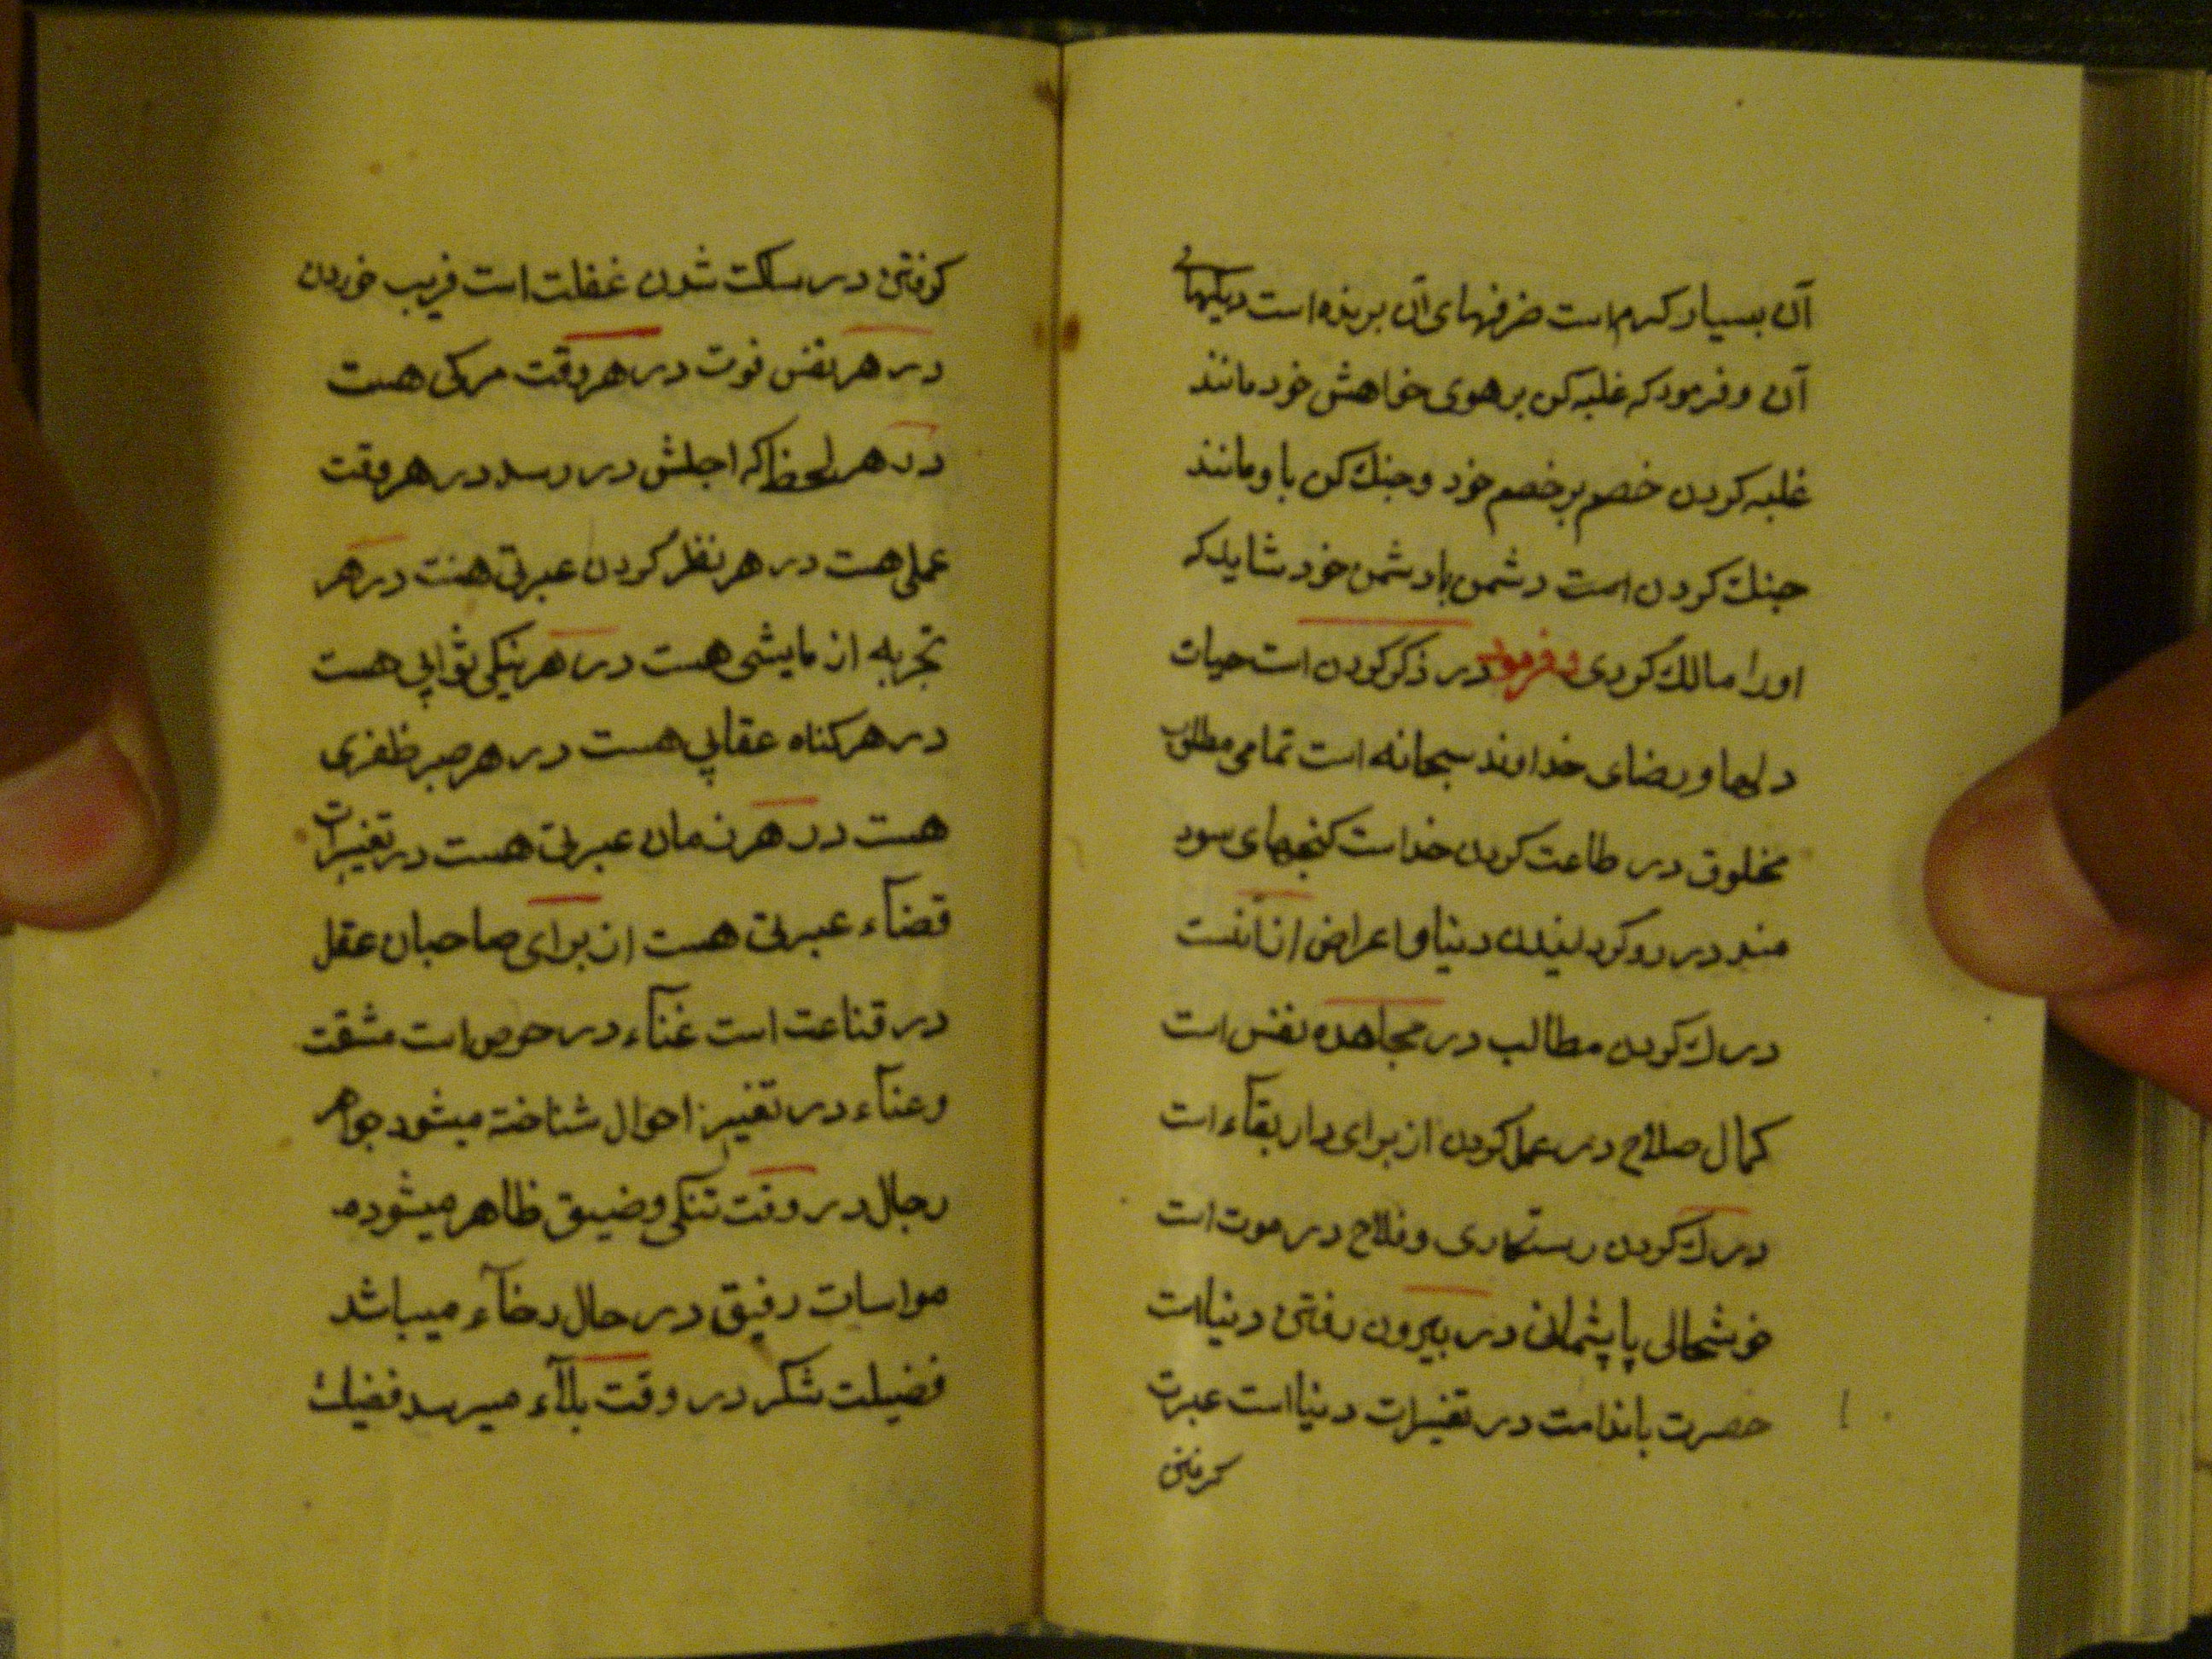 آن بسیار کرم است ضرفنهای آن برنده است دیکهای
آن و فرمود که غلبه کن بر هوی خواهش خود مانند
غلبه کردن خصم بر خصم خود و جنك کن با او مانند
جنك کردن است دشمن با دشمن خود شاید که
او را مالك کردی و فرمود در ذکر کردن است حیات
دلها و رضای خداوند سبحانه است تمامی مطلوب
مخلوق در طاعت کردن خداست کنجهای سود
مند در رو کردانیدن دنیا و اعراض از آنست
درك کردن مطالب در مجاهده نفس است
کمال صلاح در عمل کردن از برای دار بقآء است
درك کردن رستکاری و فلاح در موت است
خوشحالی پا پشمانی در بیرون رفتن دنیا است
حصرت با ندامت در تغییرات دنیا است عبرت
کرفتن
کرفتن در ساکت شدن غفلت است فریب خوردن
در هر نفس فوت در هر وقت مرکی هست
در هر لحظه که اجلش در رسد در هر وقت
عملی هست در هر نظر کردن عبرتی هست در هر
تجربه ازمایشی هست در هر نیکی ثوابی هست
در هر کناه عقابی هست در هر صبر ظفری
هست در هر زمان عبرتی هست در تغییرات
قضآء عبرتی هست از برای صاحبان عقل
در قناعت است غنآء در حرص است مشقت
و عنآء در تغییر احوال شناخته میشود جواهر
رجال در وقت تنکی و ضیق ظاهر میشود
مواسات رفیق در حال رخآء میباشد
فضیلت شکر در وقت بلآء میرسد فضیلت